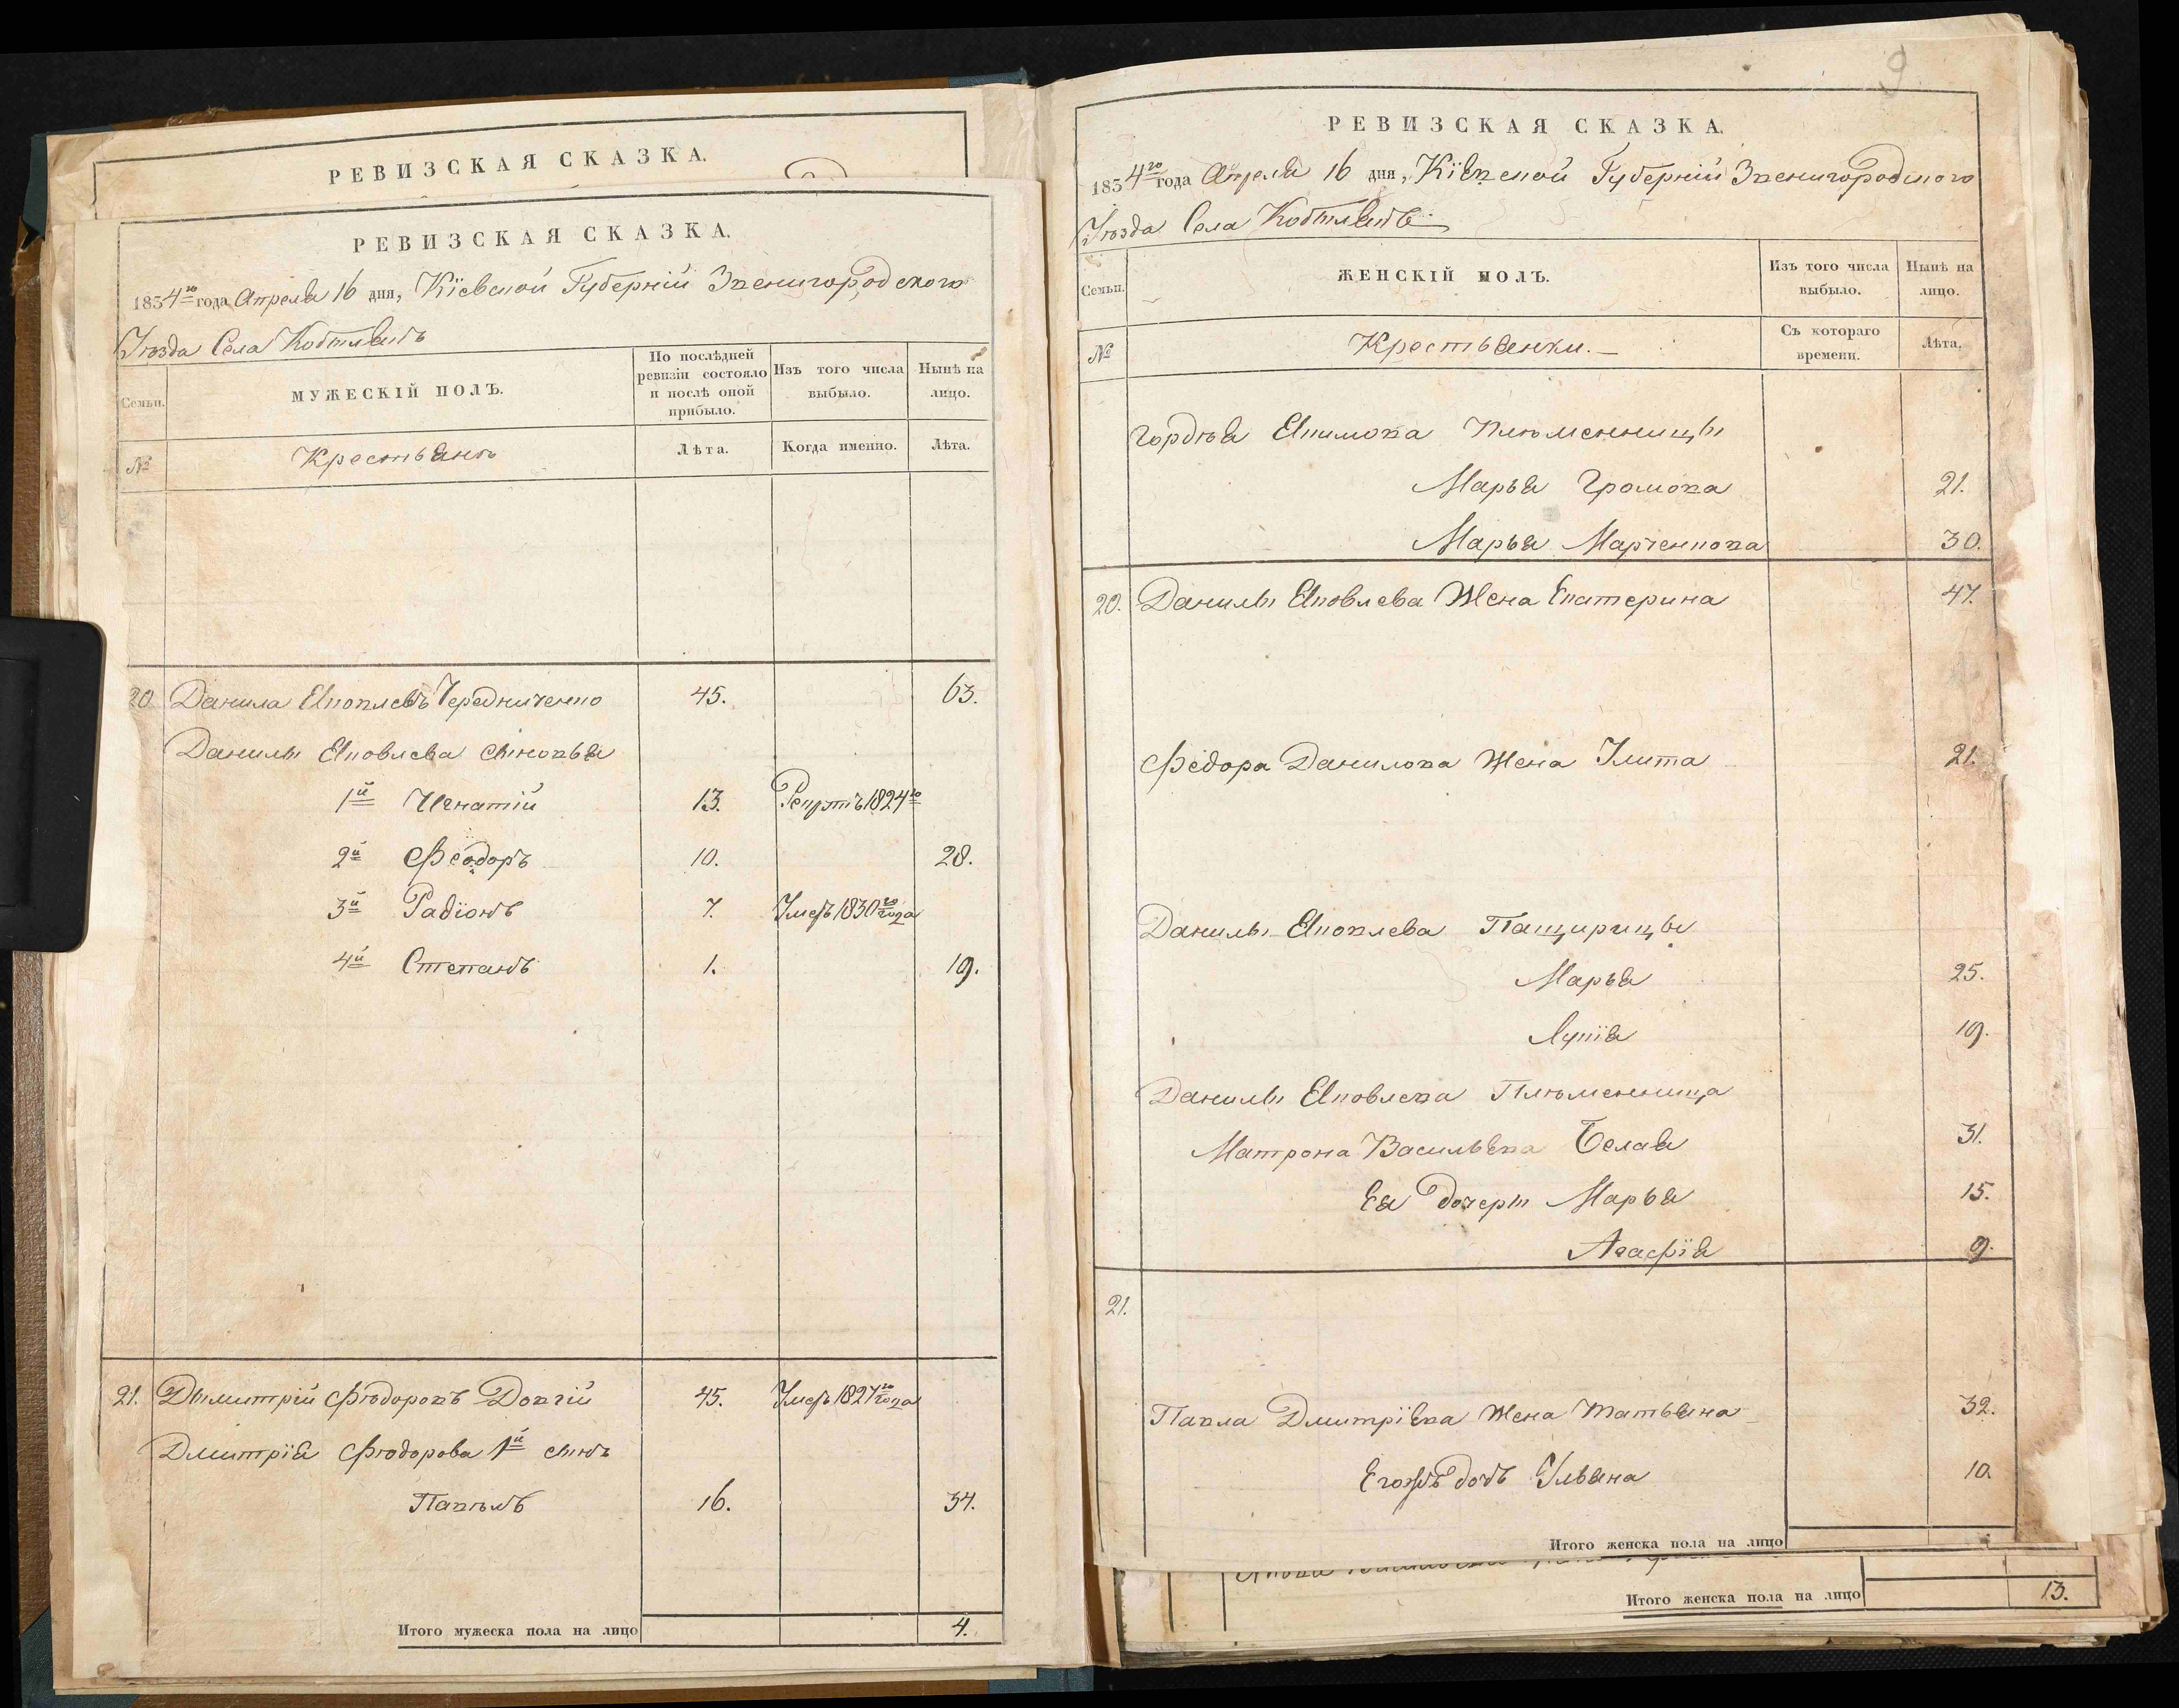 РЕВИЗСКАЯ СКАЗКА.
РЕВИЗСКАЯ СКАЗКА.
1834го года Апреля 16 дня, Кіевской Губерніи Звенигородского
Уѣзда Села
Семьи.
МУЖЕСКІЙ ПОЛЪ.
По послѣдней ревизіи состояло и послѣ оной прибыло.
Изъ того числа выбыло.
Нынѣ на лицо.
№
Крестьянъ
Лѣта.
Когда именно.
Лѣта.
20. Данила Яковлевъ Чередниченко 45. 63.
Данилы Яковлева сыновья
1й Игнатій 13. 1824го
2й Феодоръ 10. 28.
3й Радіонъ 7. Умеръ 1830го года
4й Степанъ 1. 19.
21. Дымитрій Фѣодоровъ Довгій 45. Умеръ 1827го года
Дмитрія Фѣодорова 1й сынъ
Павѣлъ 16. 34.
Итого мужеска пола на лицо 4.
9
РЕВИЗСКАЯ СКАЗКА.
1834го года Апреля 16 дня, Кіевской Губерніи Звенигородского
Уѣзда Села
Семьи.
ЖЕНСКІЙ ПОЛЪ.
Изъ того числа выбыло.
Нынѣ на лицо.
№
Крестьянки.
Съ котораго времени.
Лѣта.
Гордѣя Якимова Племѣнницы
Марья Громова 21.
Марья Марченкова 30.
20. Данилы Яковлева Жена Екатерина 47.
Федора Данилова Жена Улита 21.
Данилы Яковлева Пащирицы
Марья 25.
Лукія 19.
Данилы Яковлева Плѣменница
Матрона Васильева Белая 31.
Ея дочеры Марья 15.
Агафія 9.
21.
Павла Дмитріева Жена Татьяна 32.
Егожъ дочь Ульяна 10.
Итого женска пола на лицо
Итого женска пола на лицо 13.